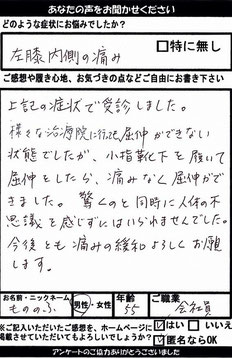 あなたの声をお聞かせください
どのような症状にお悩みでしたか?
□特に無し
左膝内側の痛み
ご感想や履き心地、お気づきの点などご自由にお書き下さい
上記の症状で受診しました。
様々な治療院に行っても屈伸ができない
状態でしたが、小指靴下を履いて
屈伸をしたら、痛みなく屈伸ができ
きました。驚くのと同時に人体の不
思議を感じずにはいられませんでした。
今後とも痛みの緩和よろしくお願
します。
お名前・ニックネーム
もののふ
男性・女性
年齢
55
ご職業
会社員
※ご記入いただいたご感想を、ホームページに
掲載させていただいてもよろしいでしょうか?
☑はい □いいえ
☑匿名ならOK
アンケートのご協力ありがとうございました